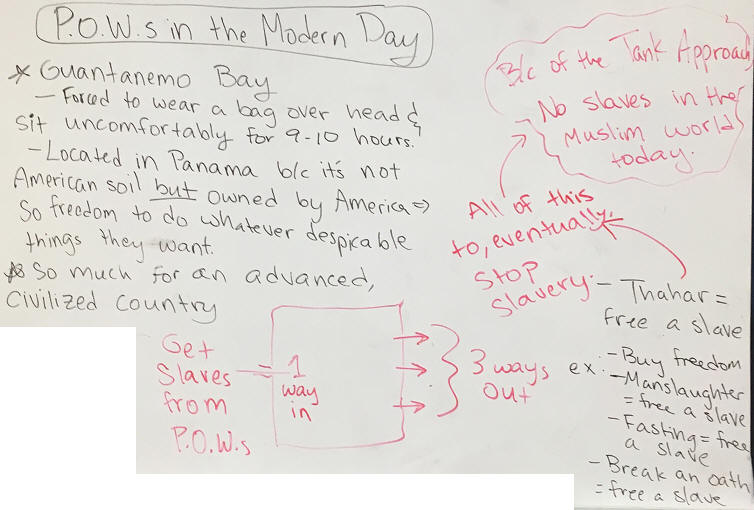 P.O.W.s in the Modern Day
* Guantanemo Bay
- Forced to wear a bag over head &
sit uncomfortably for 9-10 hours.
- Located in Panama b/c it's not
American soil but owned by America ⇒
So freedom to do whatever despicable
things they want.
* So much for an advanced,
Civilized country
B/c of the Tank Approach
- No slaves in the
Muslim world
today.
All of this
to, eventually,
STOP
Slavery.
- Thahar =
free a slave
Get
Slaves
from
P.O.W.s
= 1
way
in
3 ways
Out
ex:
- Buy freedom
- Manslaughter
= free a slave
- Fasting = free
a slave
- Break an oath
= free a slave